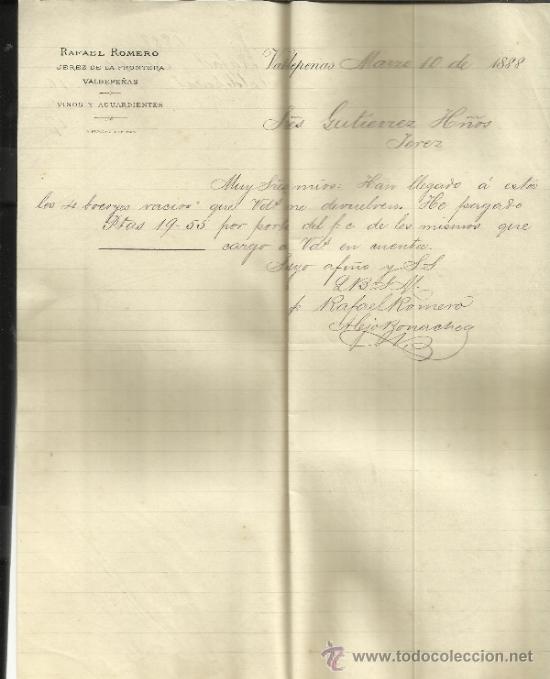 RAFAEL ROMERO
JEREZ DE LA FRONTERA
VALDEPEÑAS
VINOS Y AGUARDIENTES
Valdepeñas Marzo 10 de 1888
Sres Gutierrez Hños
Jerez
Muy Sres mios: Han llegado á estos
los 4 bocoyes vacios que Vds me devuelven. He pagado
Ptas 19-55 por porte del f.c de los mismos que
cargo a Vds en cuenta.
Suyo afmo y S.S.
Q.B.S.M.
p. Rafael Romero
Alejo Bonachea
todocoleccion
http://www.todocoleccion.net